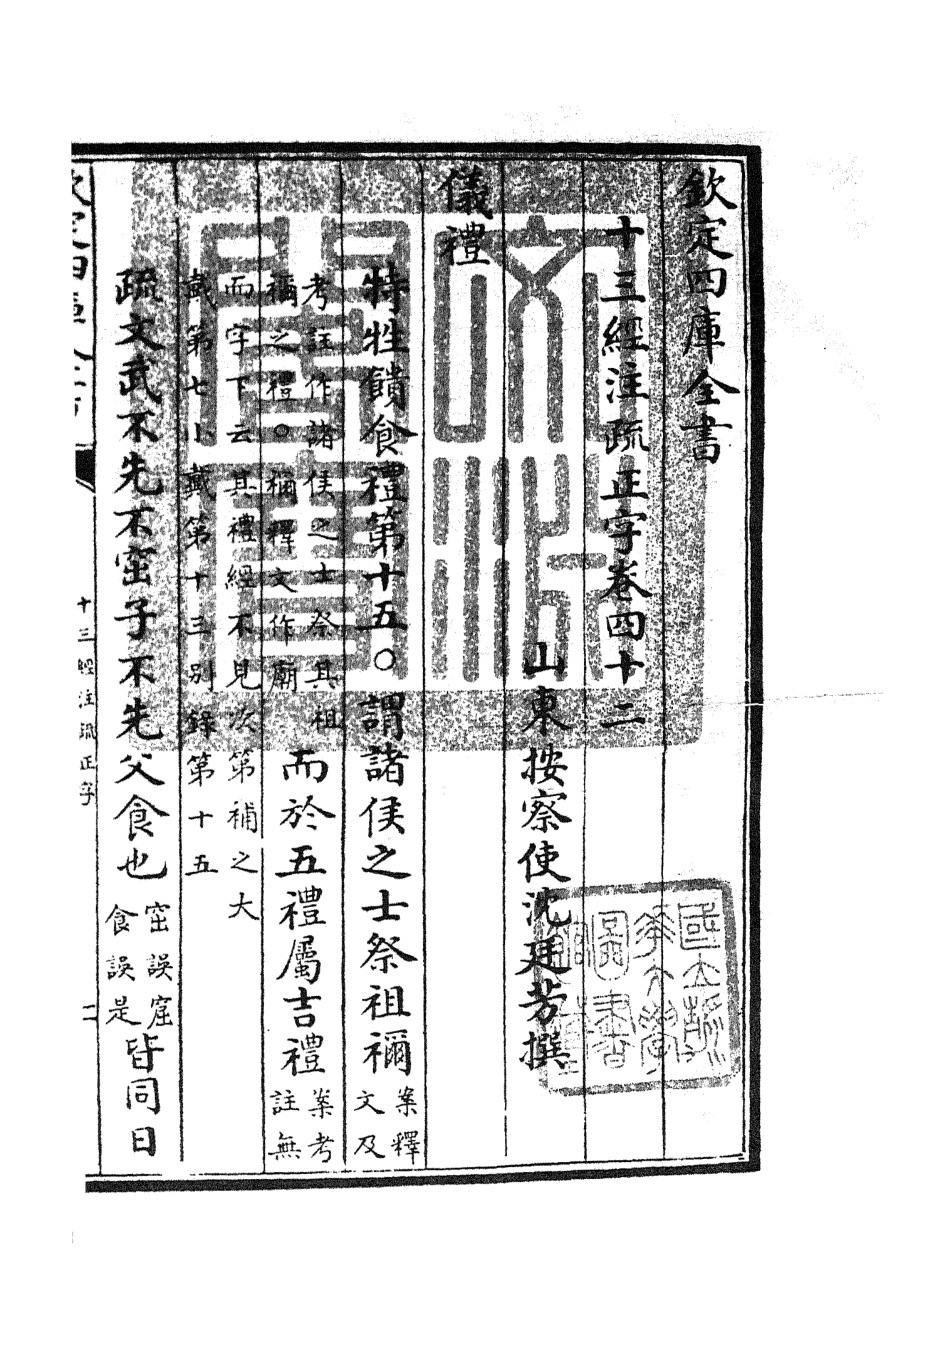 欽定四庫全書
十三經注疏正字卷四十二
山東按察使沈廷芳撰
儀禮
特牲饋食禮第十五○謂諸侯之士祭祖禰案釋文及
考註作諸侯之士祭其祖禰之禮○禰釋文作廟而於五禮屬吉禮案考註無
而字下云其禮經不見次第補之大戴第七小戴第十三別錄第十五
疏文武不先不窋子不先父食也窋誤窟食誤是皆同日
十三經注疏正字
文淵閣寶
國立清華大學圖書館藏